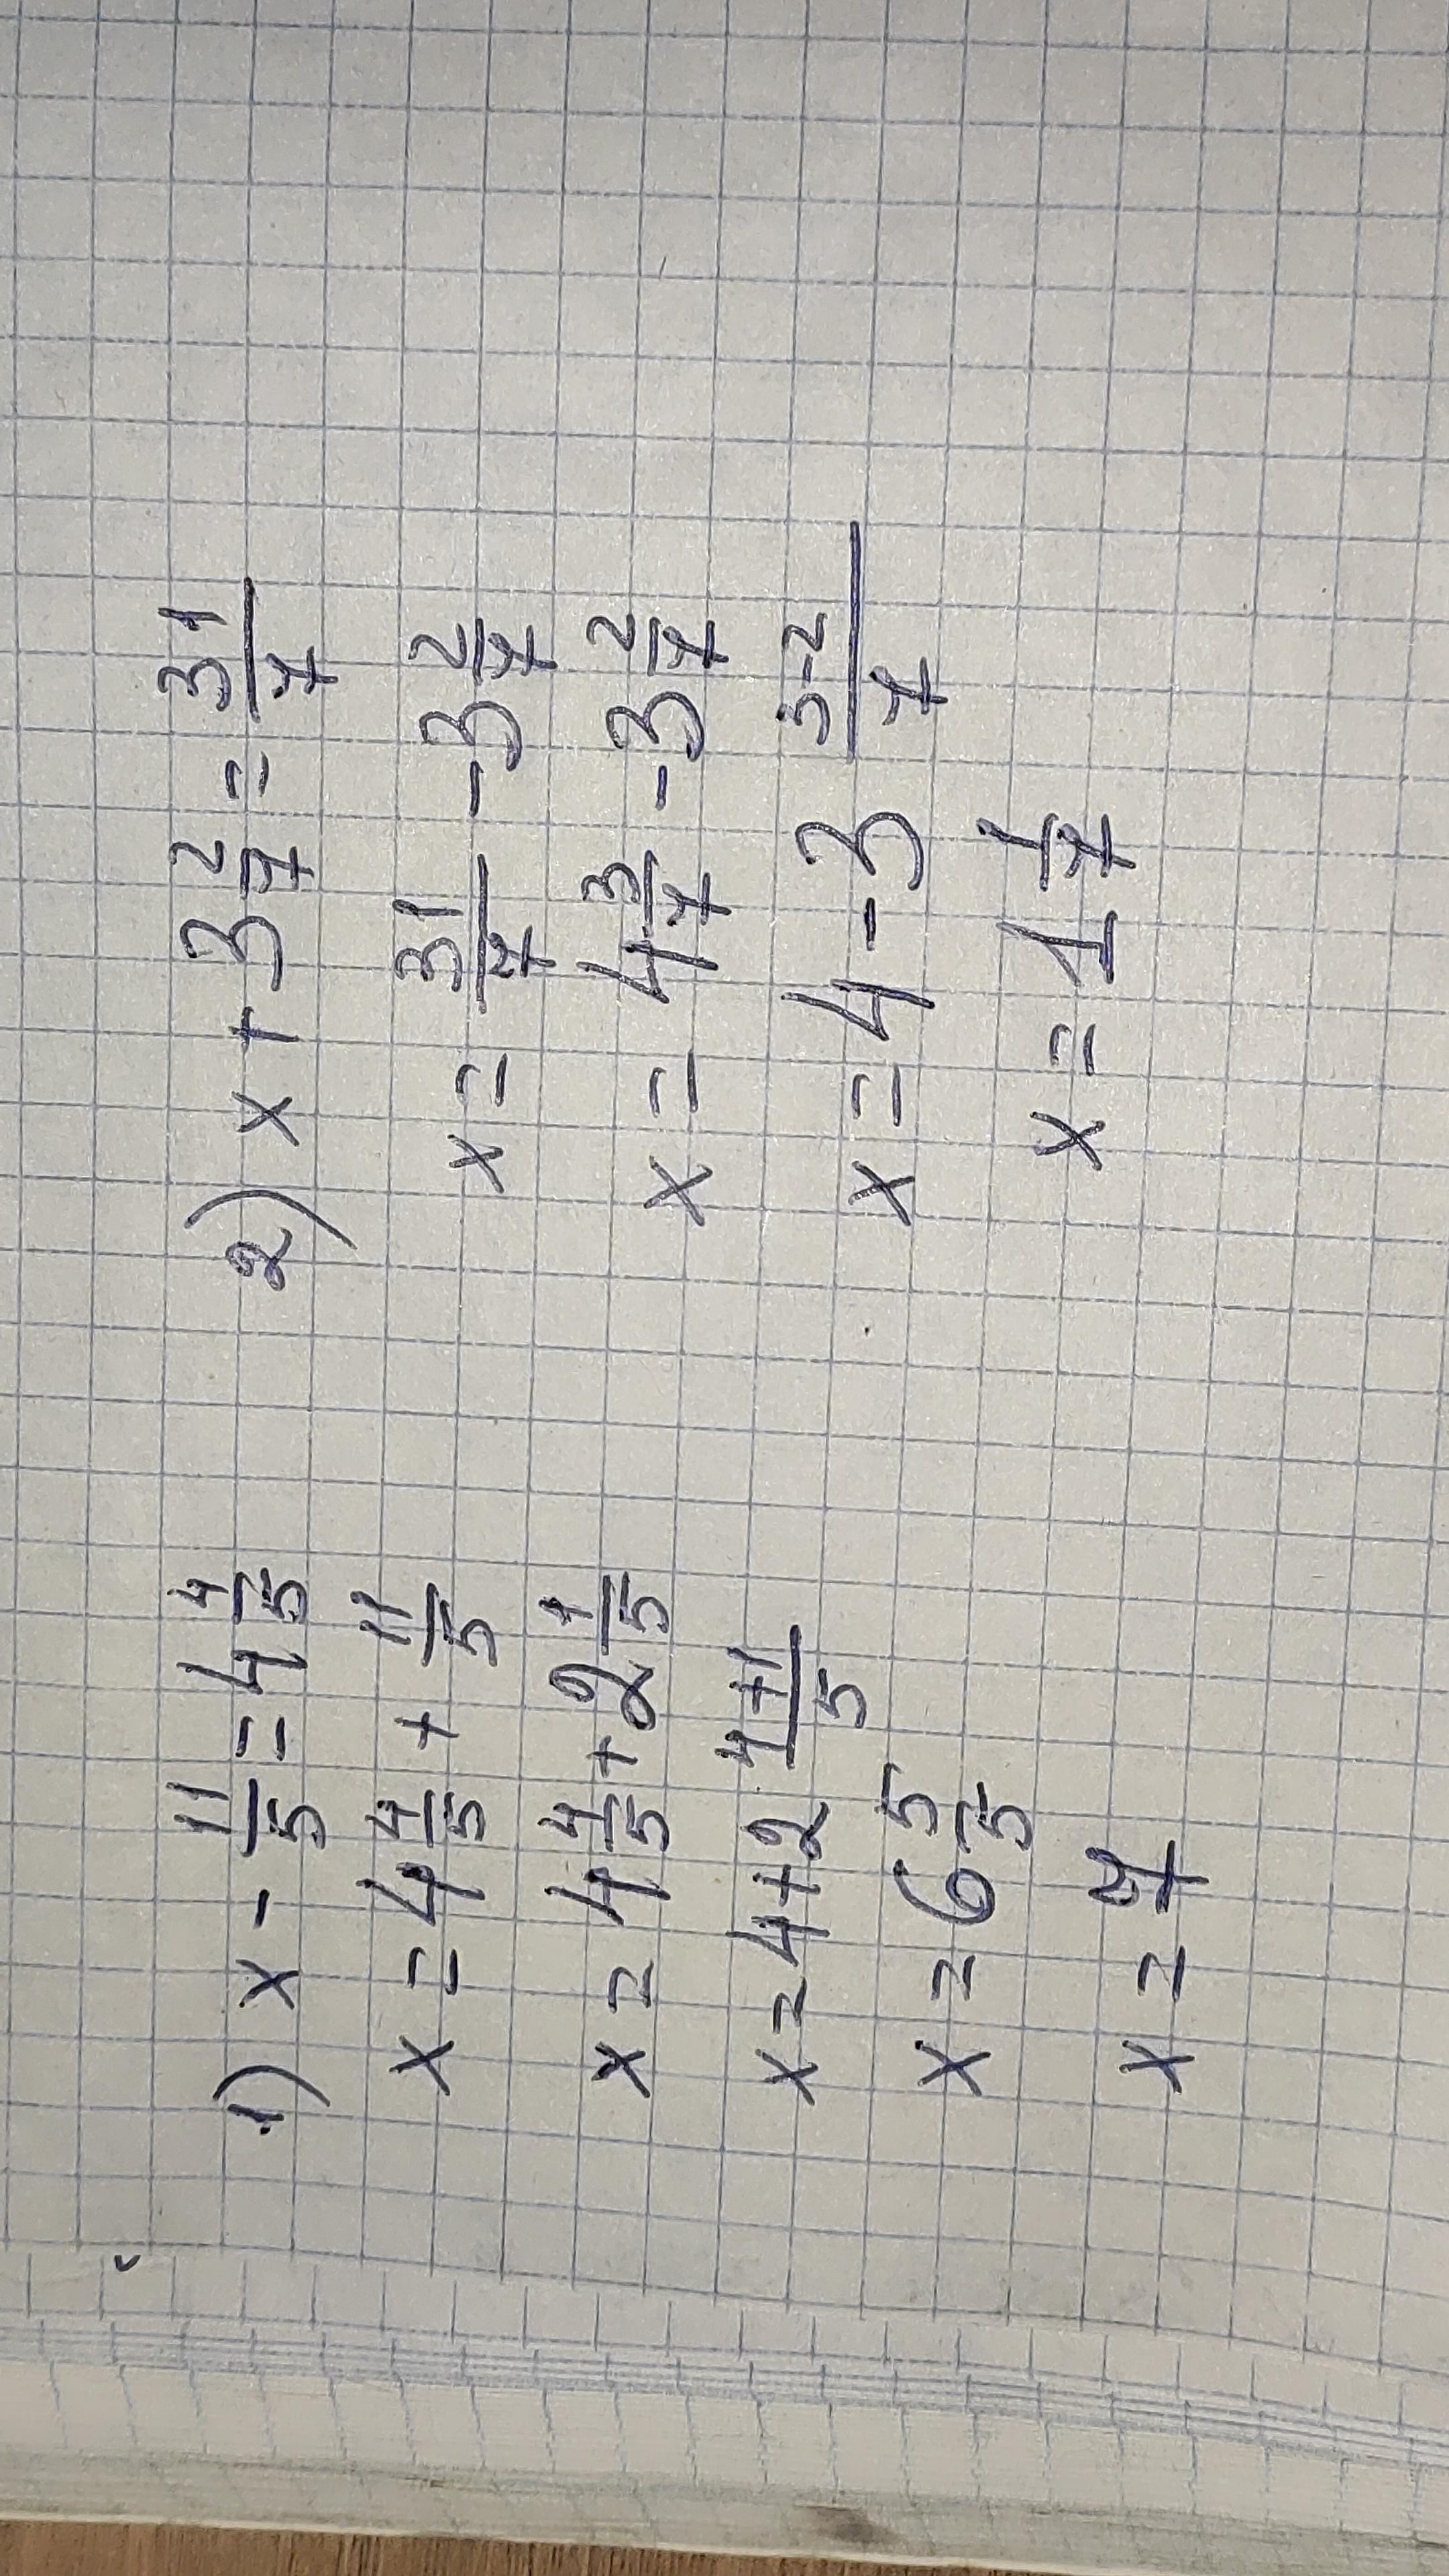 1) x - 11/5 = 4 4/5
x = 4 4/5 + 11/5
x = 4 4/5 + 2 1/5
x = 4+2 4+1/5
x = 6 5/5
x = 7
2) x + 3 2/7 = 31/7
x = 31/7 - 3 2/7
x = 4 3/7 - 3 2/7
x = 4 - 3 3-2/7
x = 1 1/7